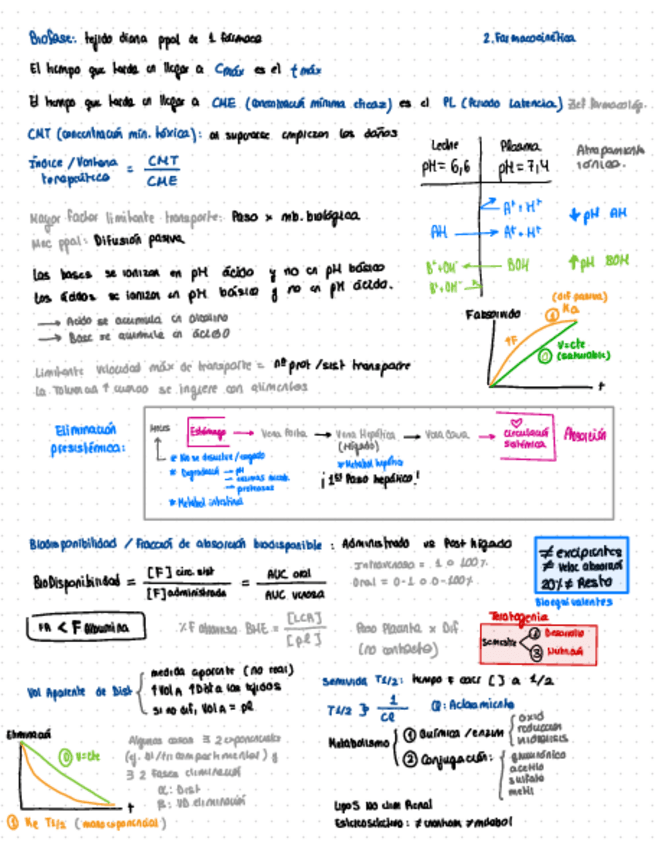 Biofase: tejido diana ppal de 1 fármaco
2. Farmacocinética
El tiempo que tarda en llegar a Cmáx es el tmáx
El tiempo que tarda en llegar a CME (concentración mínima eficaz) es el PL (Periodo Latencia)
CMT (concentración mín. tóxica): al superarse empiezan los daños
Índice / Ventana terapéutica = CMT / CME
Leche pH = 6,6
Plasma pH = 7,4
Atrapamiento iónico.
A⁻ + H⁺
AH → A⁻ + H⁺
↓ pH AH
B⁺ + OH⁻ ← BOH
↑ pH BOH
B⁺ + OH⁻
Mayor factor limitante transporte: Paso x mb. biológica
Mec ppal: Difusión pasiva
Las bases se ionizan en pH ácido y no en pH básico
Los ácidos se ionizan en pH básico y no en pH ácido.
→ Acido se acumula en alcalino
→ Base se acumula en ácido
F absorbido
(dif. pasiva)
① Ka
↑F
V=cte
⓪ (saturable)
t
Limitante velocidad máx de transporte = nº prot / sist transporte
cuando se ingiere con alimentos
Eliminación presistémica:
Heces
Estómago → Vena Porta → Vena Hepática → Vena Cava → circulación sistémica
Absorción
(Hígado)
* No se disuelve /
* Degradación → pH
→ proteasas
* Metabol intestinal
* Metabol hepático
¡1er Paso hepático!
Biodisponibilidad / Fracción de absorción biodisponible: Administrado vs Post hígado
BioDisponibilidad = [F] circ. sist / [F] administrada = AUC oral / AUC venosa
Intravenoso = 1 o 100%
Oral = 0-1 o 0-100%
≠ excipientes
≠ veloc absorción
20% ≠ Resto
Bioequivalentes
< F Albúmina
BHE = [LCR] / [pl]
Paso Placenta x Dif.
Teratogenia
Semestre
① Desarrollo
③
Vol Aparente de Dist
medida aparente (no real)
↑Vol A ↑Dist a los tejidos
si no dif, Vol A = pl
Semivida T1/2: tiempo [] a 1/2
T1/2 1 / Cl
Cl: Aclaramiento
Metabolismo
① Química / enzim
oxid
reducción
hidrólisis
② Conjugación:
glucurónico
acetilo
sulfato
metil
Eliminación
⓪ V=cte
t
① Ke T1/2 (monoexponencial)
Algunos casos ∃ 2 exponenciales
(ej. bi/tricompartimental) y
∃ 2 fases eliminación
α: Dist
β: VD eliminación
LipoS no elim Renal
Estereoselectivo: ≠ ≠ metabol